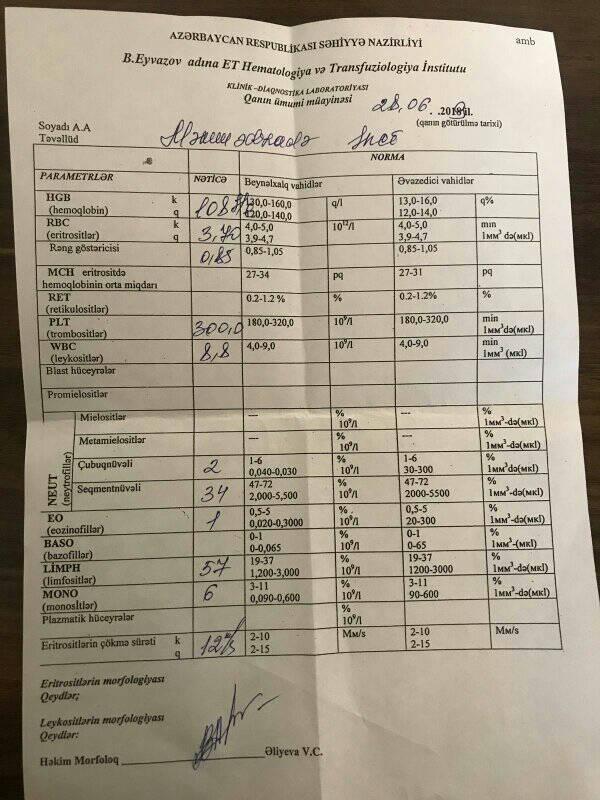 AZƏRBAYCAN RESPUBLİKASI SƏHİYYƏ NAZİRLİYİ
amb
B.Eyvazov adına ET Hematologiya və Transfuziologiya İnstitutu
KLİNİK-DİAQNOSTİKA LABORATORİYASI
Qanın ümumi müayinəsi
28.06.2018 il.
(qanın götürülmə tarixi)
Soyadı A.A
Təvəllüd
NORMA
PARAMETRLƏR NƏTİCƏ Beynəlxalq vahidlər Əvəzedici vahidlər
HGB k 108 130,0-160,0 q/l 13,0-16,0 q%
(hemoqlobin) q 120,0-140,0 12,0-14,0
RBC k 3,70 4,0-5,0 10¹²/l 4,0-5,0 mın
(eritrositlər) q 3,9-4,7 3,9-4,7 1мм³ də(мкl)
Rəng göstəricisi 0,85 0,85-1,05 0,85-1,05
MCH eritrositdə 27-34 pq 27-31 pq
hemoqlobinin orta miqdarı
RET 0.2-1.2 % % 0.2-1.2% %
(retikulositlər)
PLT 300,0 180,0-320,0 10⁹/l 180,0-320,0 min
(trombositlər) 1мм³də(мкl)
WBC 8,8 4,0-9,0 10⁹/l 4,0-9,0 min
(leykositlər) 1мм³ (мкl)
Blast hüceyrələr
Promielositlər
NEUT (neytrofillər)
Mielositlər --- % --- %
10⁹/l 1мм³-də(мкl)
Metamielositlər --- % --- %
10⁹/l 1мм³-də(мкl)
Çubuqnüvəli 2 1-6 % 1-6 %
0,040-0,030 10⁹/l 30-300 1мм³də(мкl)
Seqmentnüvəli 34 47-72 % 47-72 %
2,000-5,500 10⁹/l 2000-5500 1мм³-də(мкl)
EO 1 0,5-5 % 0,5-5 %
(eozinofillər) 0,020-0,3000 10⁹/l 20-300 1мм³-də(мкl)
BASO 0-1 % 0-1 %
(bazofillər) 0-0,065 10⁹/l 0-65 1мм³-(мкl)
LİMPH 57 19-37 % 19-37 %
(limfositlər) 1,200-3,000 10⁹/l 1200-3000 1мм³-də(мкl)
MONO 6 3-11 % 3-11 %
(monositlər) 0,090-0,600 10⁹/l 90-600 1мм³-də(мкl)
Plazmatik hüceyrələr %
10⁹/l
Eritrositlərin çökmə sürəti k 12 2-10 Мм/s 2-10 Мм/s
q 2-15 2-15
Eritrositlərin morfologiyası
Qeydlər;
Leykositlərin morfologiyası
Qeydlər:
Həkim Morfoloq Əliyeva V.C.